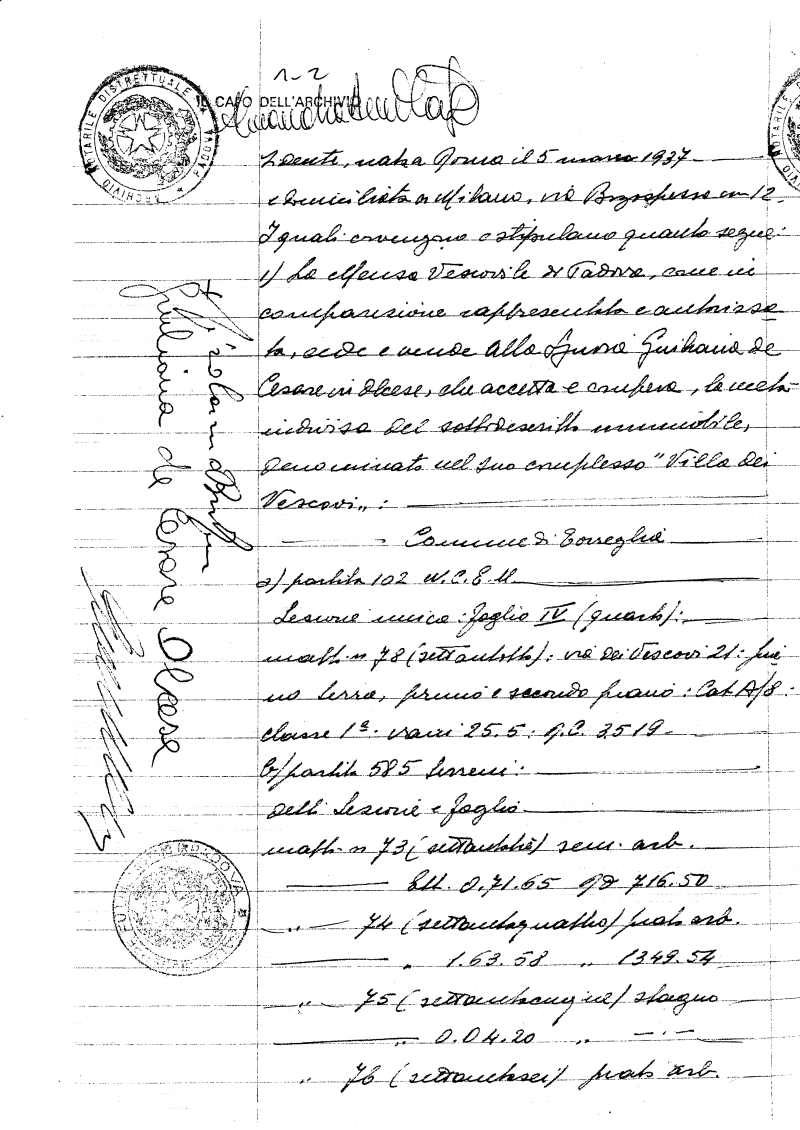 1-2
ARCHIVIO NOTARILE DISTRETTUALE PADOVA
IL CAPO DELL'ARCHIVIO
dente, nata a Roma il 5 marzo 1937
e domiciliata a Milano, via 12.
I quali convengono e stipulano quanto segue:
1) La Mensa Vescovile di Padova, come in
comparizione rappresentata e autorizza-
ta, cede e vende alla Signora Giuliana de
Cesare in Olcese, che accetta e compera, la metà
indivisa del sottodescritto immobile,
denominato nel suo complesso "Villa dei
Vescovi":
Comune di Torreglia
a) partita 102 N.C.E.U.
Sezione unica: foglio IV (quarto):
mapp. n 78 (settantotto): via dei Vescovi 21: pia
no terra, primo e secondo piano: Cat A/8:
classe 1ª vani 25.5: R.C. 3519
b) partita 585 terreni:
detti Sezione e foglio
mapp. n 73 (settantatrè) sem. arb.
Ett. 0.71.65 RD 716.50
" 74 (settantaquattro) prato arb.
" 1.63.58 " 1349.54
" 75 (settantacinque) stagno
" 0.04.20 " —.—
" 76 (settantasei) prato arb.
Giuliana de Cesare Olcese